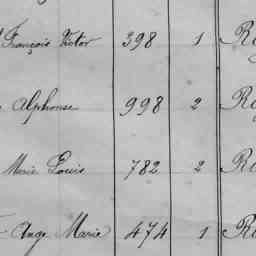 François Victor 398 1
Alphonse 998 2
Marie Louis 782 2
Ange Marie 474 1